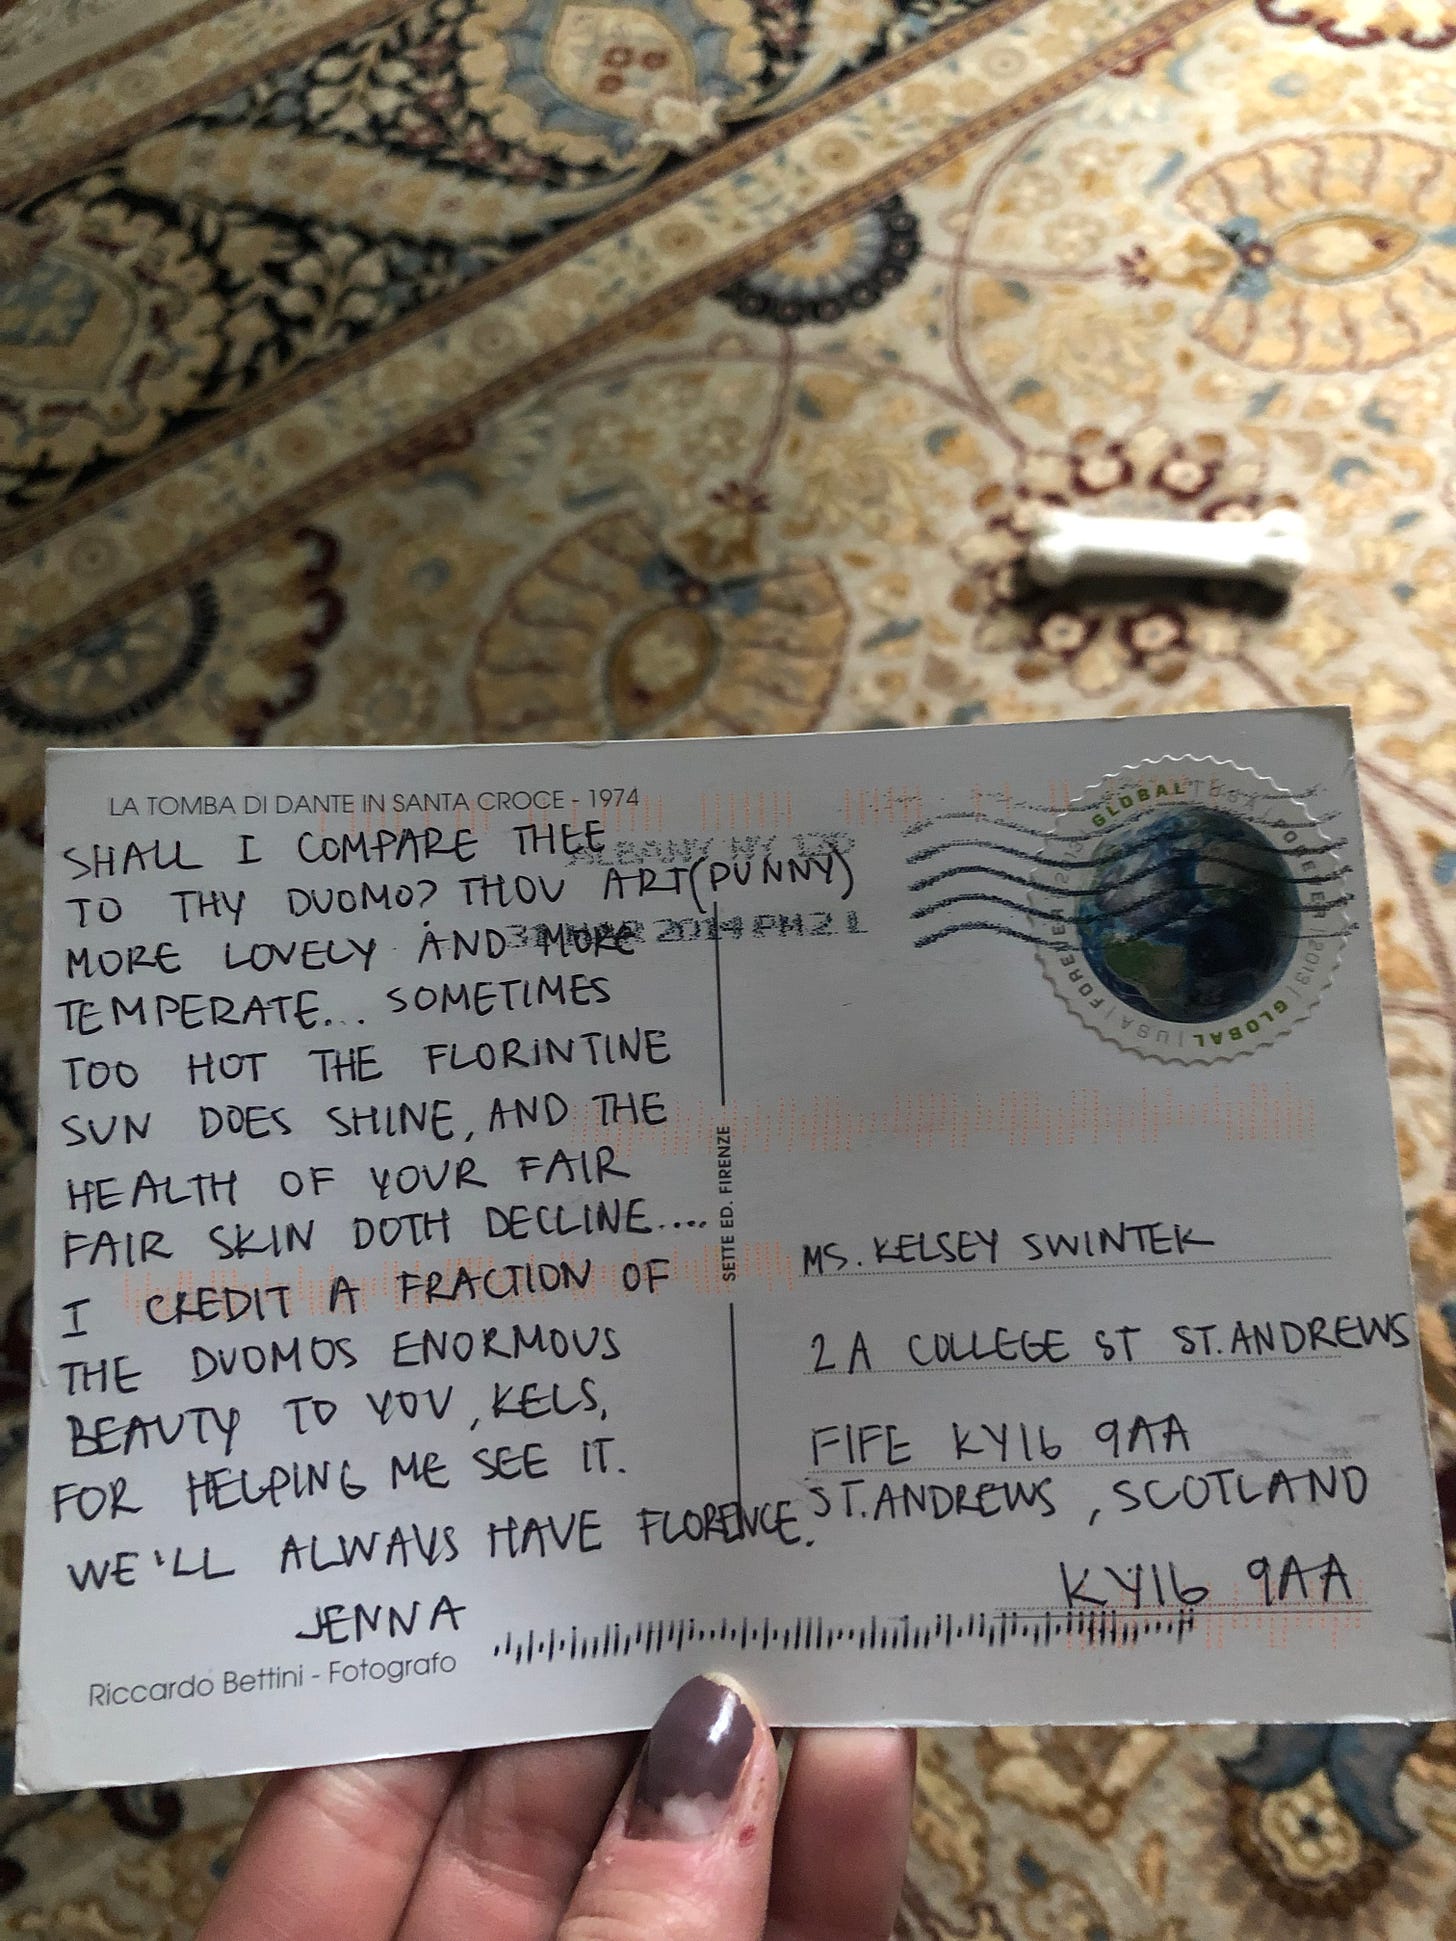 LA TOMBA DI DANTE IN SANTA CROCE - 1974
SHALL I COMPARE THEE
TO THY DUOMO? THOU ART (PUNNY)
MORE LOVELY AND MORE
TEMPERATE... SOMETIMES
TOO HOT THE FLORINTINE
SUN DOES SHINE, AND THE
HEALTH OF YOUR FAIR
FAIR SKIN DOTH DECLINE....
I CREDIT A FRACTION OF
THE DUOMOS ENORMOUS
BEAUTY TO YOU, KELS,
FOR HELPING ME SEE IT.
WE'LL ALWAYS HAVE FLORENCE.
JENNA
Riccardo Bettini - Fotografo
SETTE ED. FIRENZE
ALBANY NY
MAR 2014 PM 2 L
GLOBAL USA FOREVER 2013
GLOBAL USA FOREVER 2013
MS. KELSEY SWINTEK
2A COLLEGE ST ST. ANDREWS
FIFE KY16 9AA
ST. ANDREWS, SCOTLAND
KY16 9AA